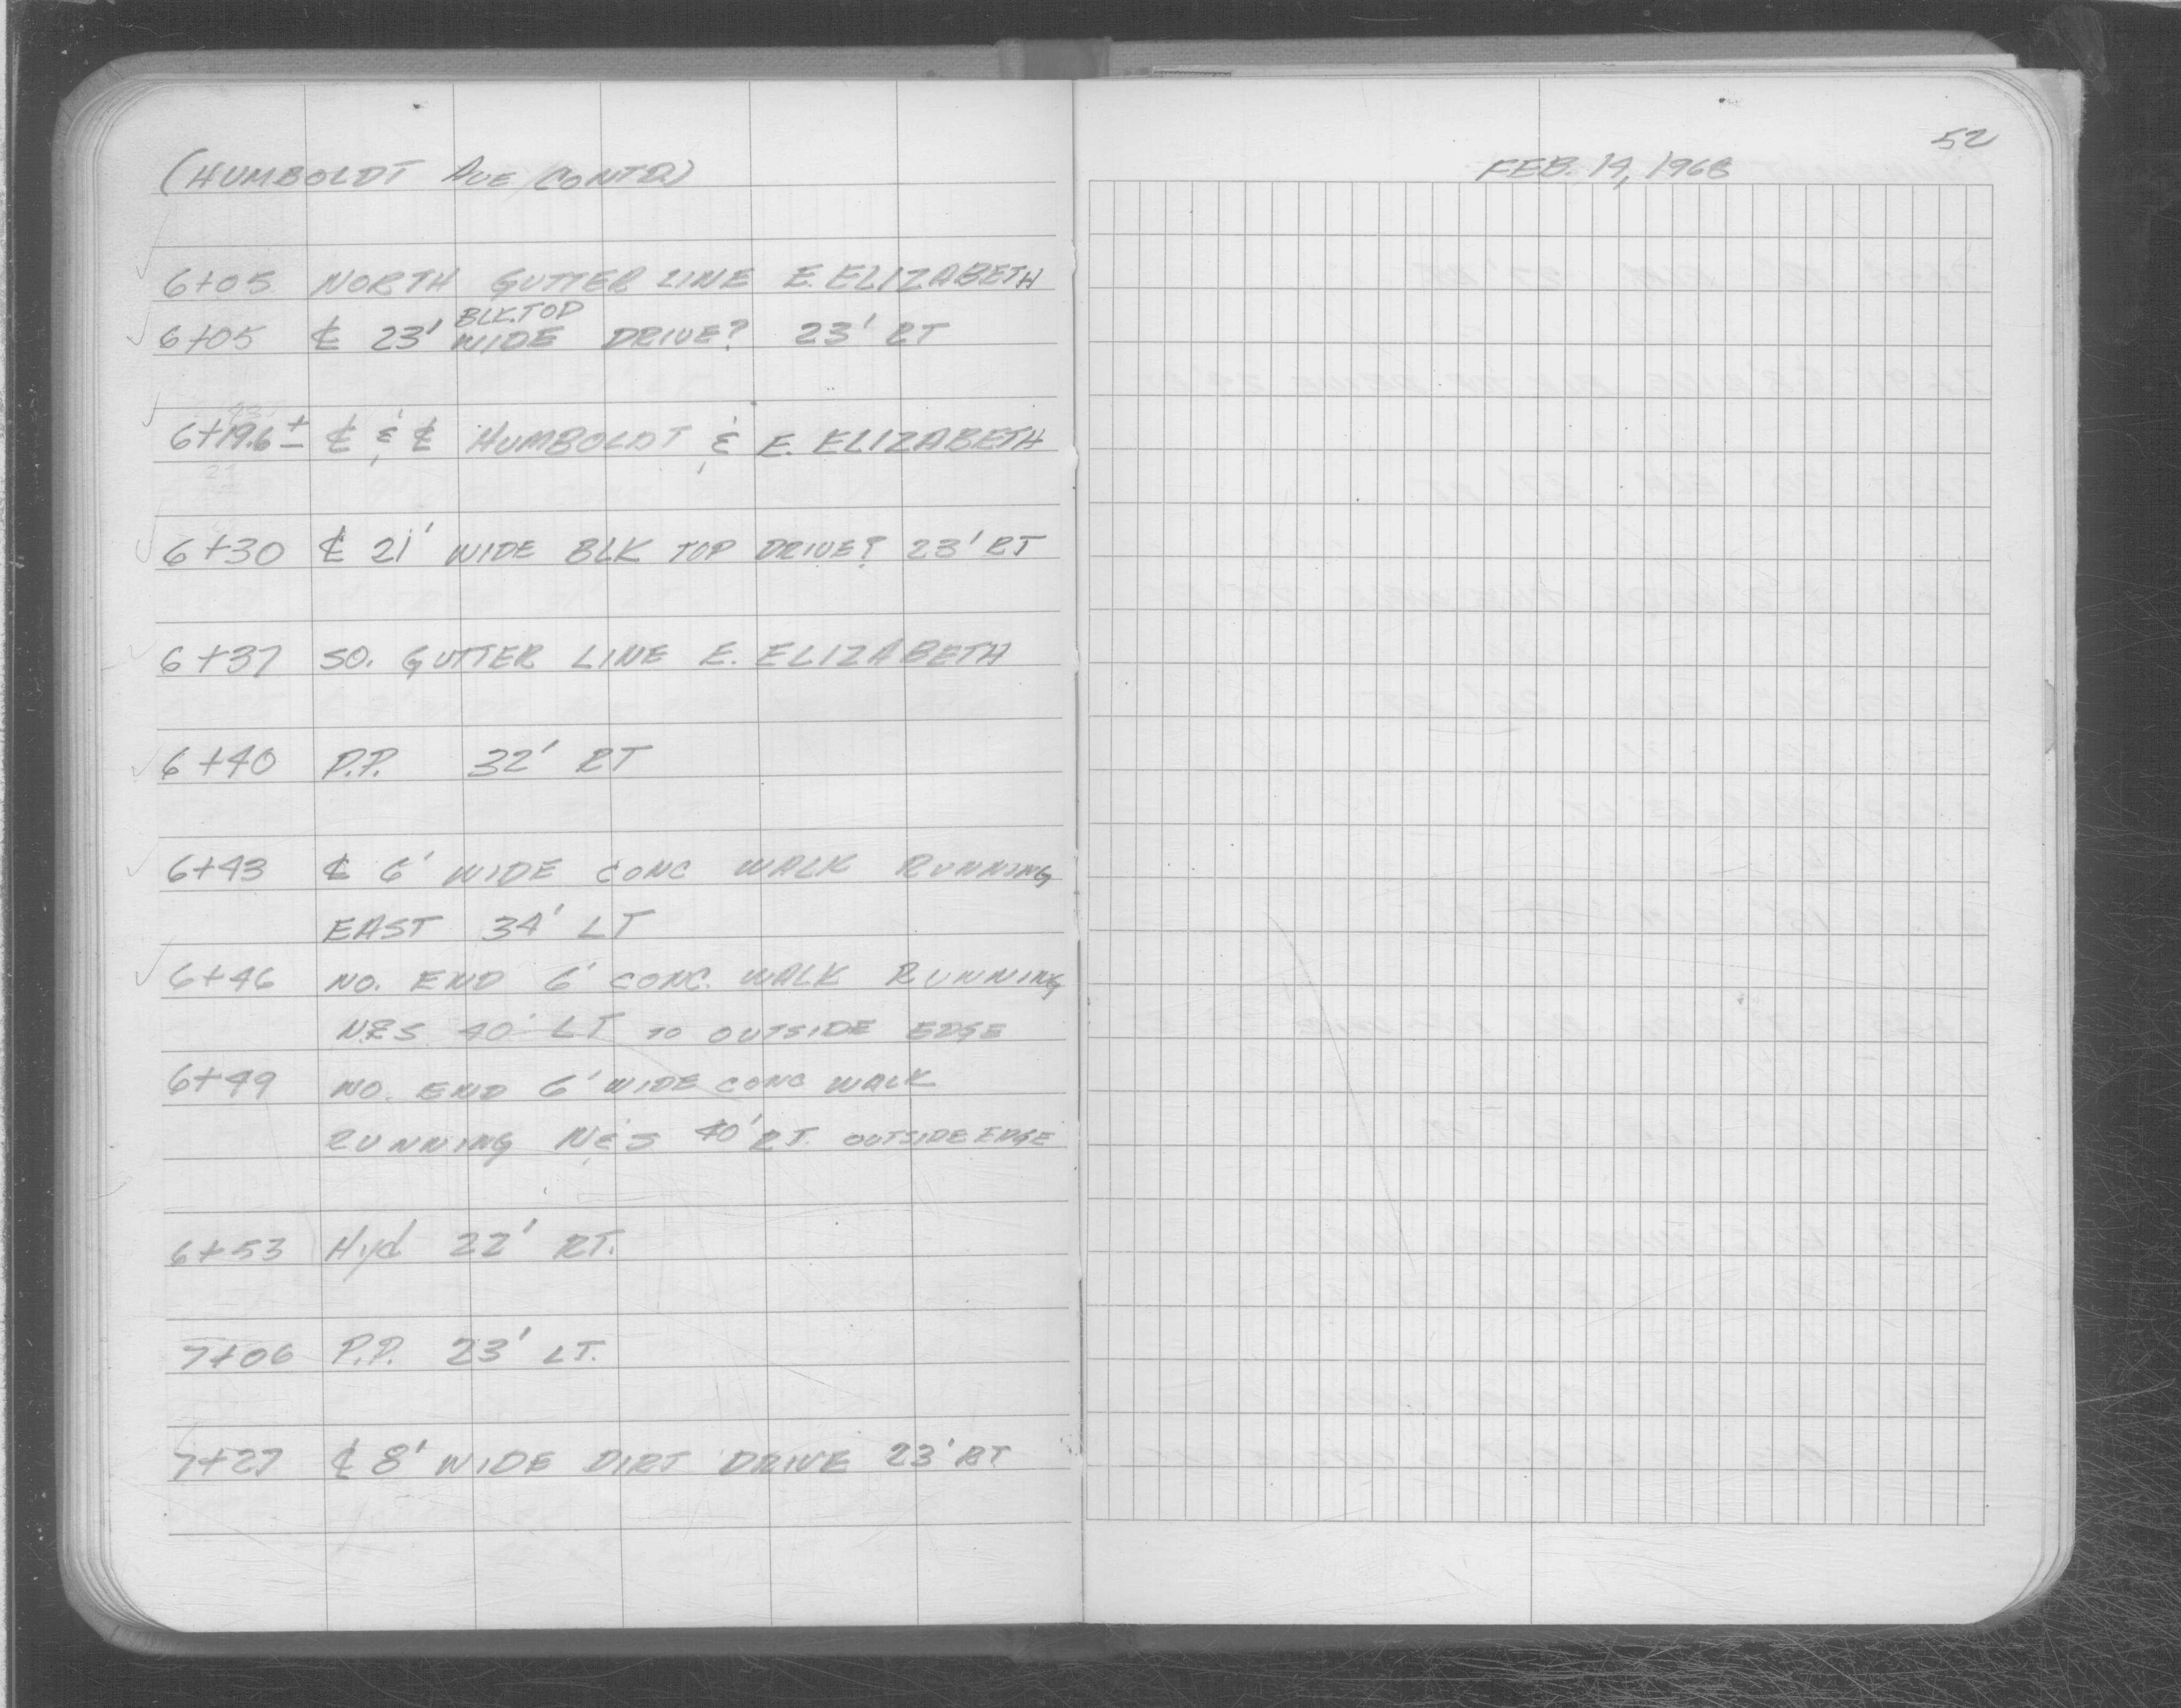 (HUMBOLDT AVE CONT'D)
52
FEB. 14, 1968
6+05 NORTH GUTTER LINE E. ELIZABETH
BLK.TOP
6+05 ℄ 23' WIDE DRIVE? 23' RT
6+19.6± ℄ & ℄ HUMBOLDT & E. ELIZABETH
6+30 ℄ 21' WIDE BLK TOP DRIVE? 23' RT
6+37 SO. GUTTER LINE E. ELIZABETH
6+40 P.P. 32' RT
6+43 ℄ 6' WIDE CONC WALK RUNNING
EAST 34' LT
6+46 NO. END 6' CONC. WALK RUNNING
N&S 40' LT TO OUTSIDE EDGE
6+49 NO. END 6' WIDE CONC WALK
RUNNING N&S 40' RT. OUTSIDE EDGE
6+53 Hyd 22' RT.
7+06 P.P. 23' LT.
7+27 ℄ 8' WIDE DIRT DRIVE 23' RT